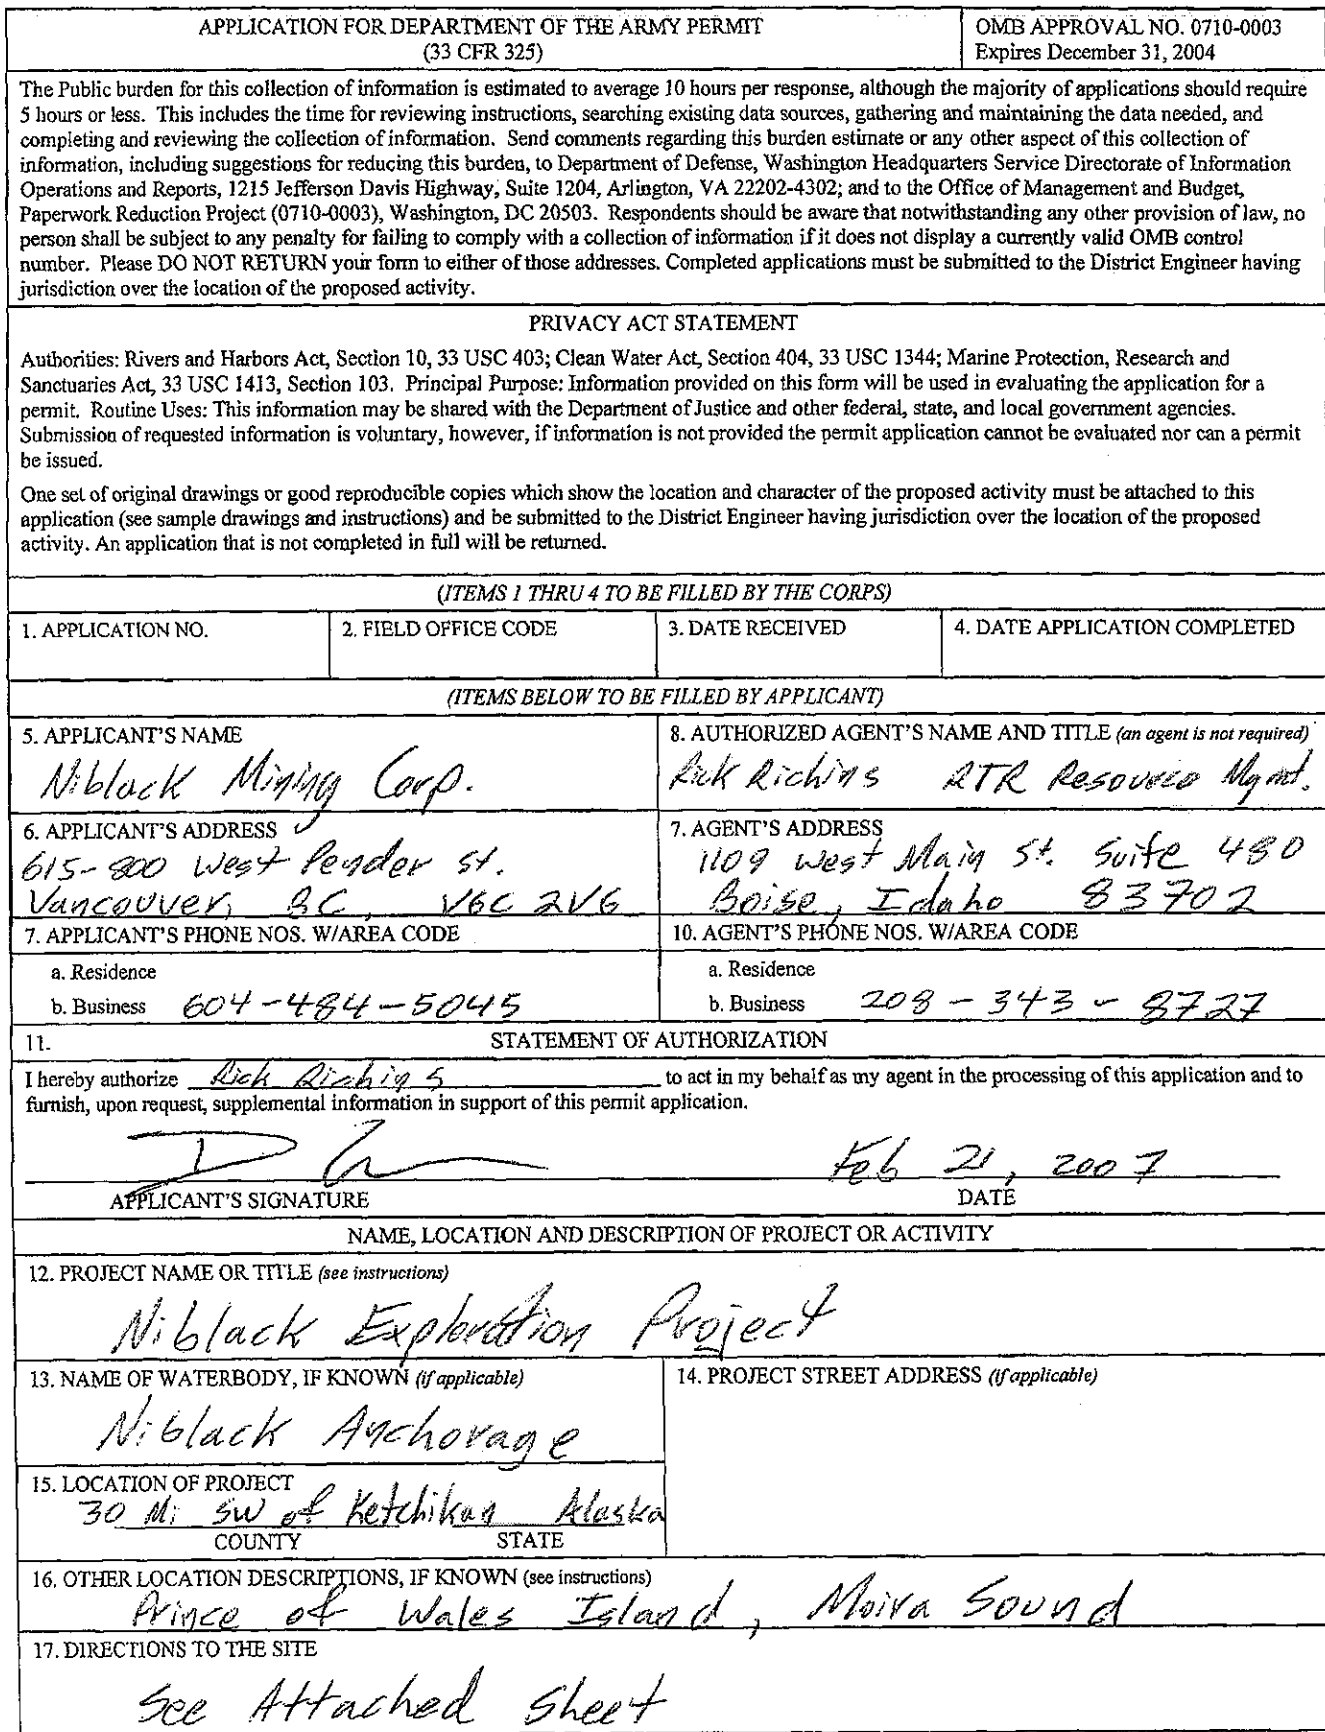 APPLICATION FOR DEPARTMENT OF THE ARMY PERMIT
(33 CFR 325)
OMB APPROVAL NO. 0710-0003
Expires December 31, 2004
The Public burden for this collection of information is estimated to average 10 hours per response, although the majority of applications should require
5 hours or less. This includes the time for reviewing instructions, searching existing data sources, gathering and maintaining the data needed, and
completing and reviewing the collection of information. Send comments regarding this burden estimate or any other aspect of this collection of
information, including suggestions for reducing this burden, to Department of Defense, Washington Headquarters Service Directorate of Information
Operations and Reports, 1215 Jefferson Davis Highway, Suite 1204, Arlington, VA 22202-4302; and to the Office of Management and Budget,
Paperwork Reduction Project (0710-0003), Washington, DC 20503. Respondents should be aware that notwithstanding any other provision of law, no
person shall be subject to any penalty for failing to comply with a collection of information if it does not display a currently valid OMB control
number. Please DO NOT RETURN your form to either of those addresses. Completed applications must be submitted to the District Engineer having
jurisdiction over the location of the proposed activity.
PRIVACY ACT STATEMENT
Authorities: Rivers and Harbors Act, Section 10, 33 USC 403; Clean Water Act, Section 404, 33 USC 1344; Marine Protection, Research and
Sanctuaries Act, 33 USC 1413, Section 103. Principal Purpose: Information provided on this form will be used in evaluating the application for a
permit. Routine Uses: This information may be shared with the Department of Justice and other federal, state, and local government agencies.
Submission of requested information is voluntary, however, if information is not provided the permit application cannot be evaluated nor can a permit
be issued.
One set of original drawings or good reproducible copies which show the location and character of the proposed activity must be attached to this
application (see sample drawings and instructions) and be submitted to the District Engineer having jurisdiction over the location of the proposed
activity. An application that is not completed in full will be returned.
(ITEMS 1 THRU 4 TO BE FILLED BY THE CORPS)
1. APPLICATION NO.
2. FIELD OFFICE CODE
3. DATE RECEIVED
4. DATE APPLICATION COMPLETED
(ITEMS BELOW TO BE FILLED BY APPLICANT)
5. APPLICANT'S NAME
Niblack Mining Corp.
8. AUTHORIZED AGENT'S NAME AND TITLE (an agent is not required)
Rick Richins RTR Resource Mgmt.
6. APPLICANT'S ADDRESS
615-800 West Pender St.
Vancouver, BC, V6C 2V6
7. AGENT'S ADDRESS
1109 West Main St. Suite 480
Boise, Idaho 83702
7. APPLICANT'S PHONE NOS. W/AREA CODE
a. Residence
b. Business 604-484-5045
10. AGENT'S PHONE NOS. W/AREA CODE
a. Residence
b. Business 208-343-8727
11. STATEMENT OF AUTHORIZATION
I hereby authorize Rick Richins to act in my behalf as my agent in the processing of this application and to
furnish, upon request, supplemental information in support of this permit application.
Feb 21, 2007
APPLICANT'S SIGNATURE DATE
NAME, LOCATION AND DESCRIPTION OF PROJECT OR ACTIVITY
12. PROJECT NAME OR TITLE (see instructions)
Niblack Exploration Project
13. NAME OF WATERBODY, IF KNOWN (if applicable)
Niblack Anchorage
14. PROJECT STREET ADDRESS (if applicable)
15. LOCATION OF PROJECT
30 Mi SW of Ketchikan Alaska
COUNTY STATE
16. OTHER LOCATION DESCRIPTIONS, IF KNOWN (see instructions)
Prince of Wales Island, Moira Sound
17. DIRECTIONS TO THE SITE
See Attached Sheet